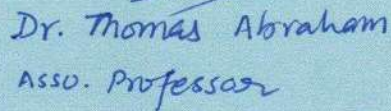 Dr. Thomas Abraham
Asso. Professor